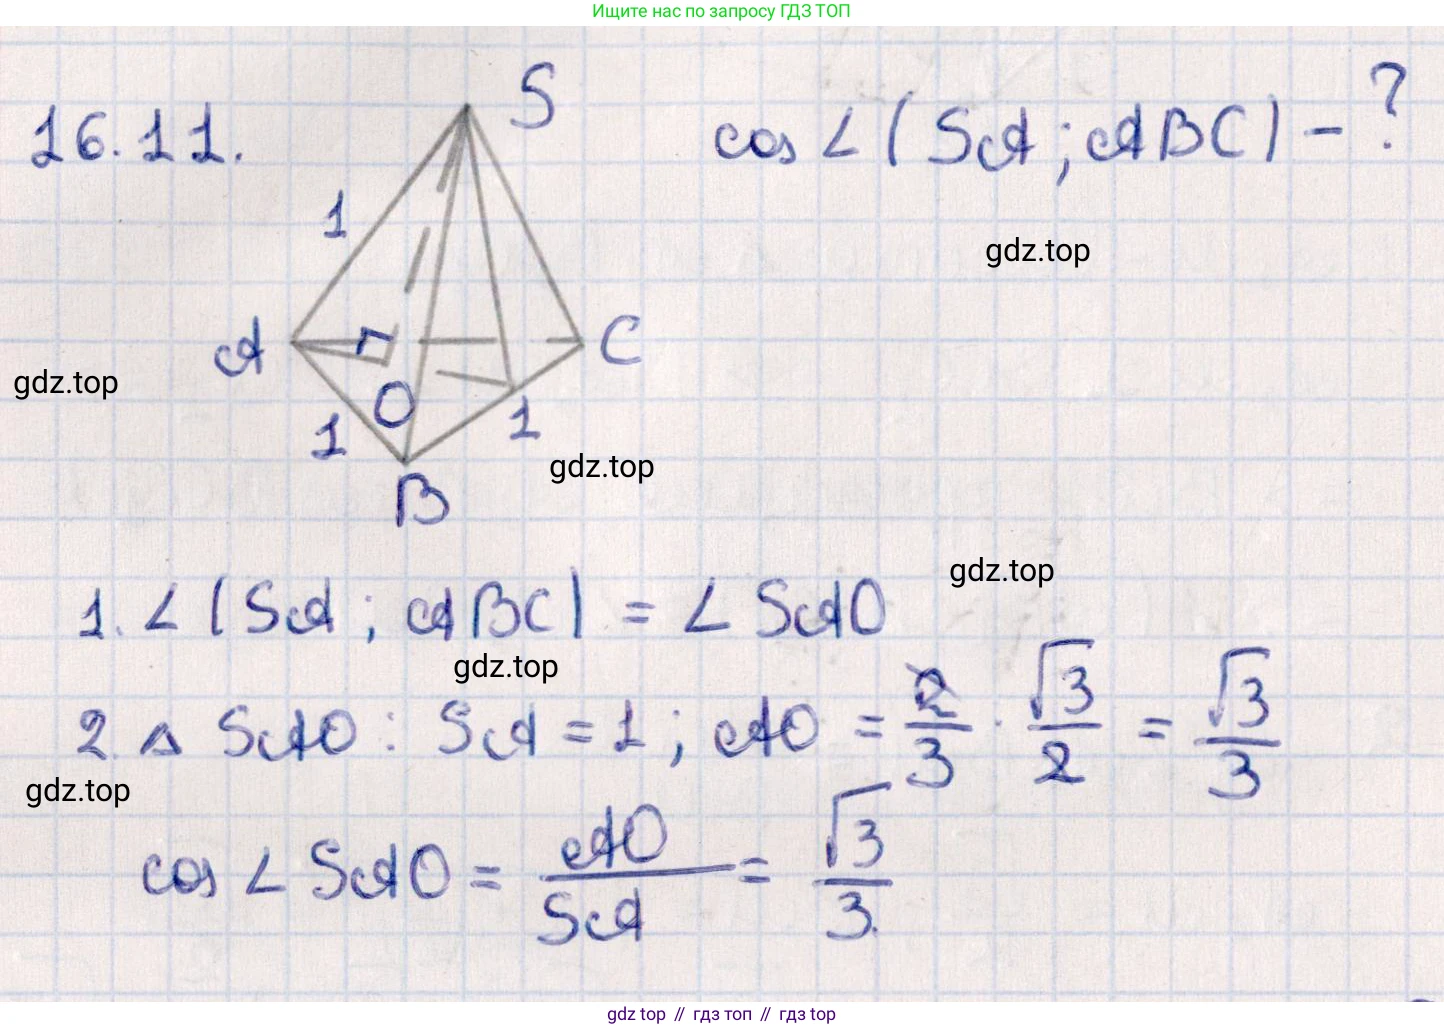 Ищите нас по запросу ГДЗ ТОП
16.11.
S
cos ∠(SA; ABC) - ?
1
gdz.top
A
C
gdz.top
O
1
1
gdz.top
B
gdz.top
1. ∠(SA; ABC) = ∠ SAO
gdz.top
2. △ SAO: SA = 1; AO = 2/3 · √3/2 = √3/3
gdz.top
cos ∠ SAO = AO/SA = √3/3.
gdz top // гдз топ // гдз top